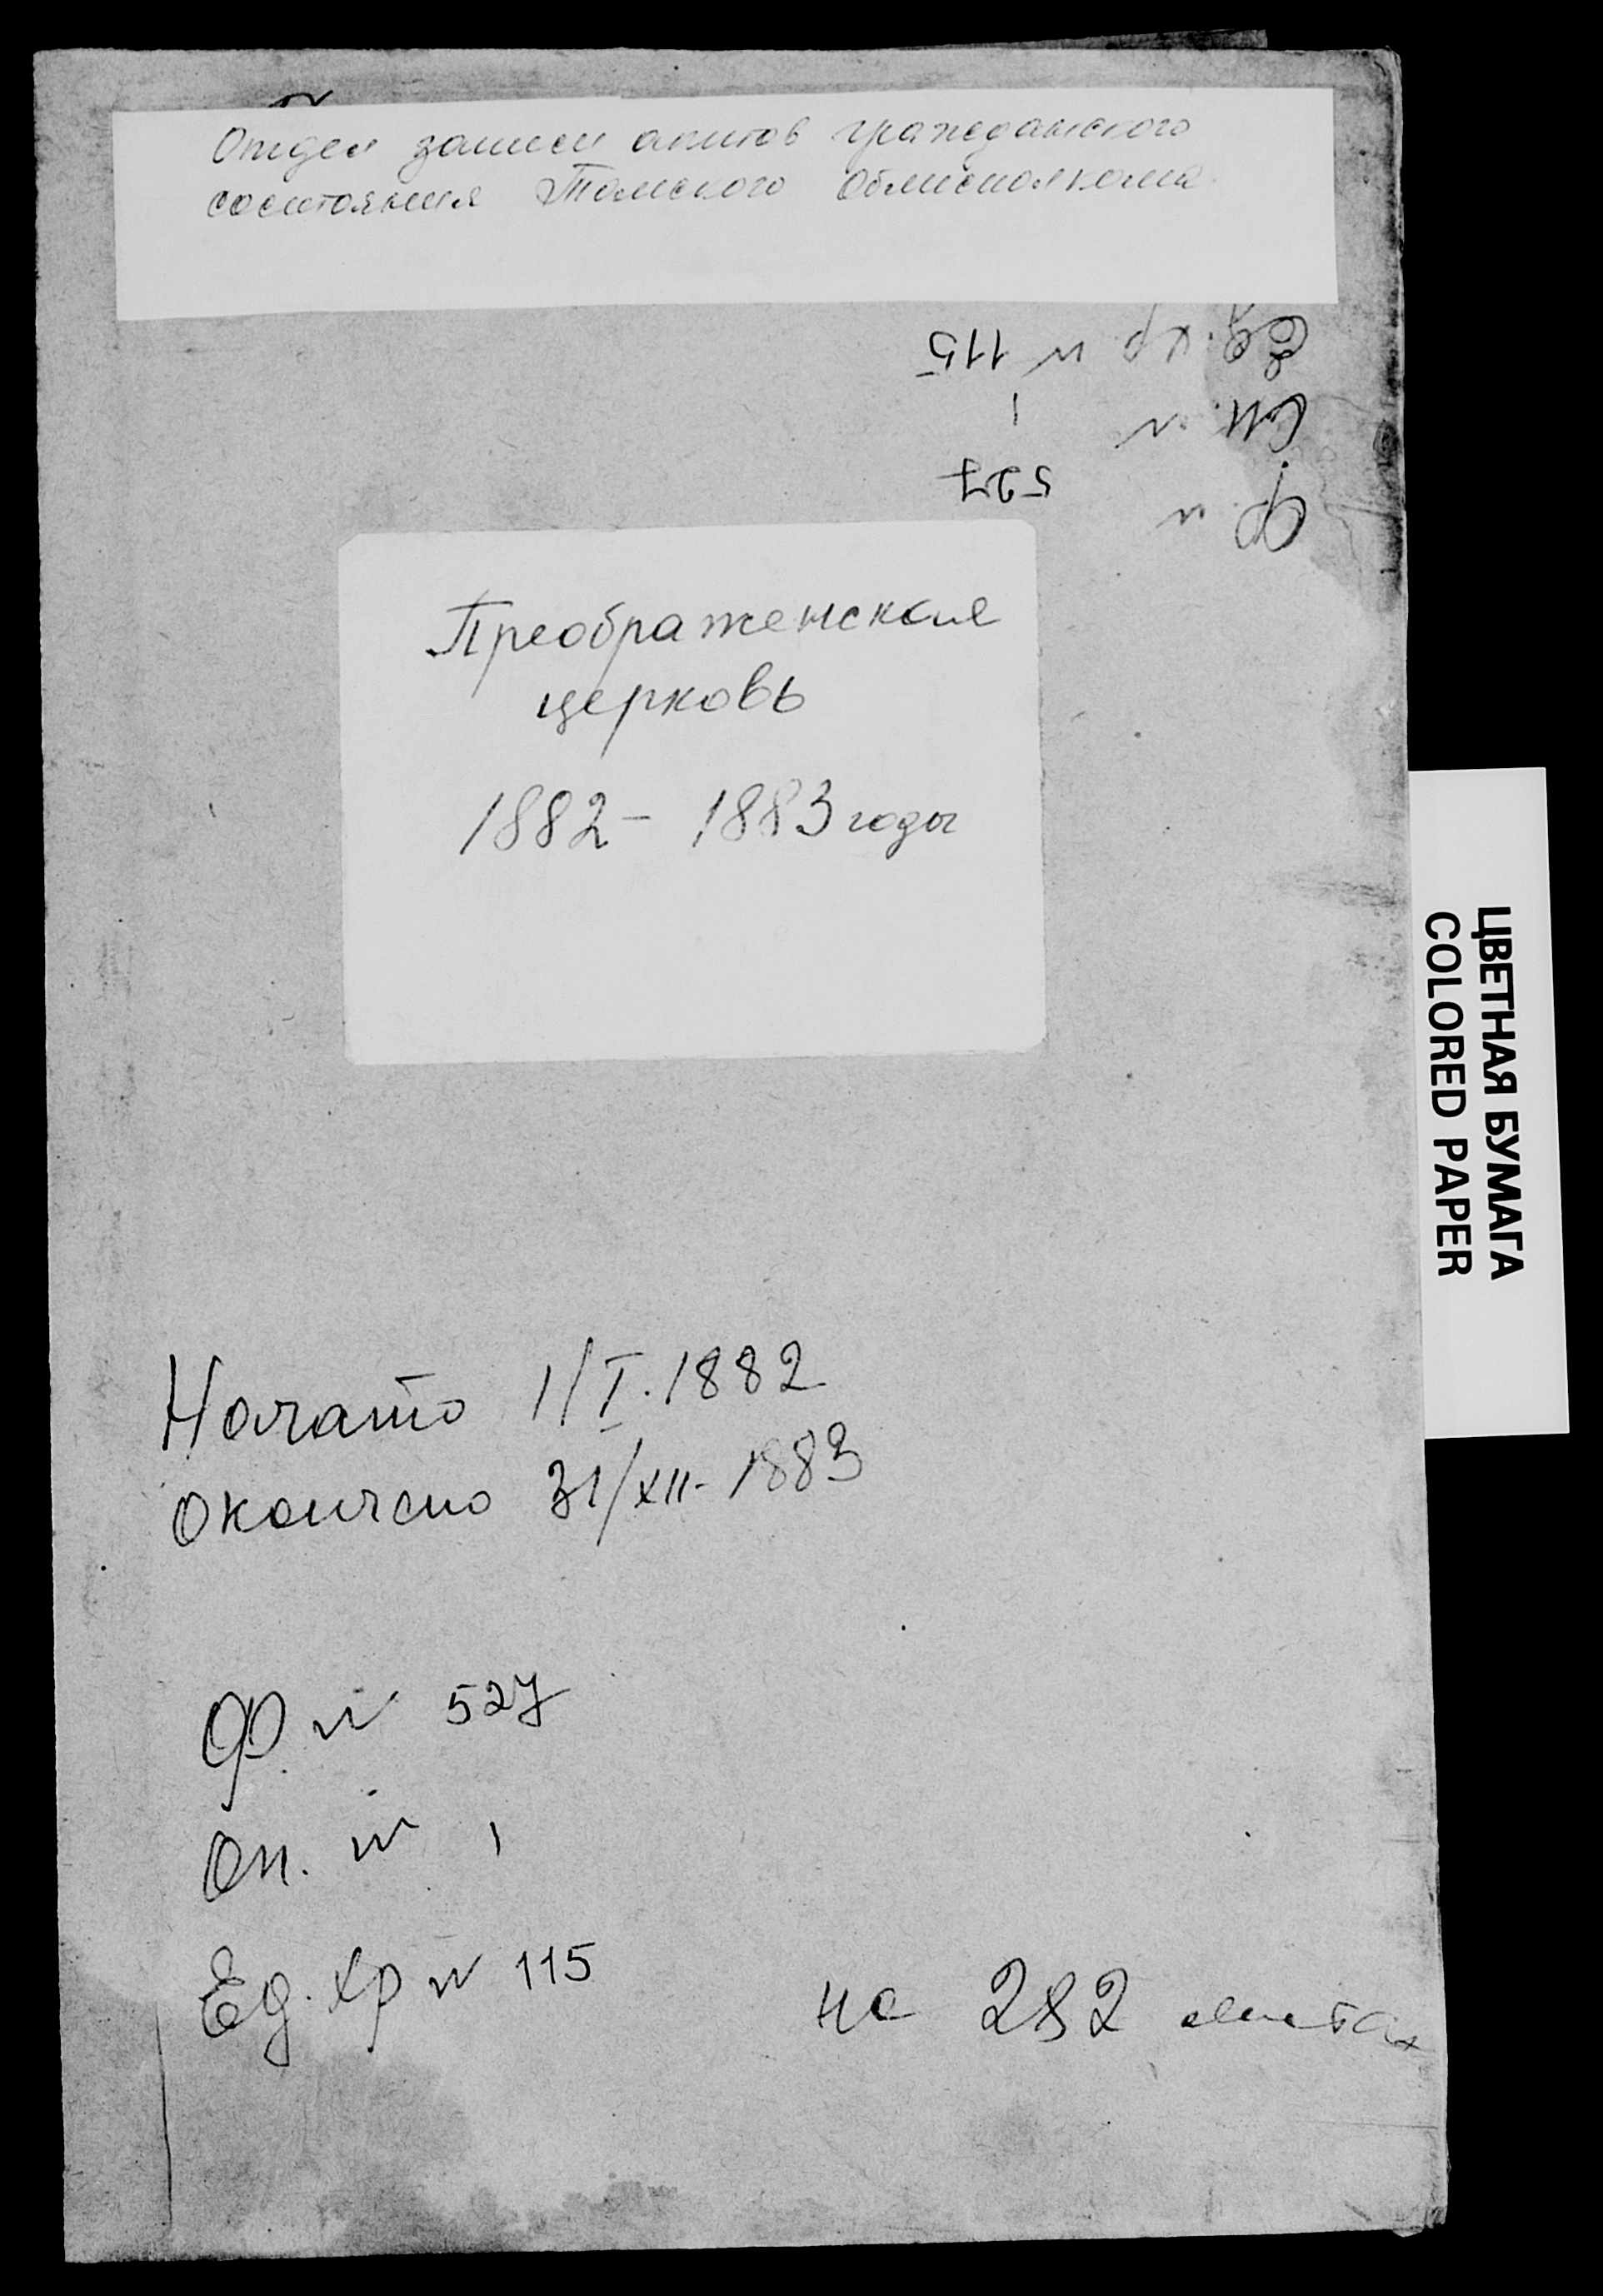 Отдел записи актов гражданского
состояния Томского Облисполкома
Ед. хр № 115
Оп. № 1
Ф. № 527
Преображенская
церковь
1882 – 1883 годы
ЦВЕТНАЯ БУМАГА
COLORED PAPER
Начато 1/I. 1882
Окончено 31/XII - 1883
Ф. № 527
Оп. № 1
Ед. хр № 115
на 282 листах